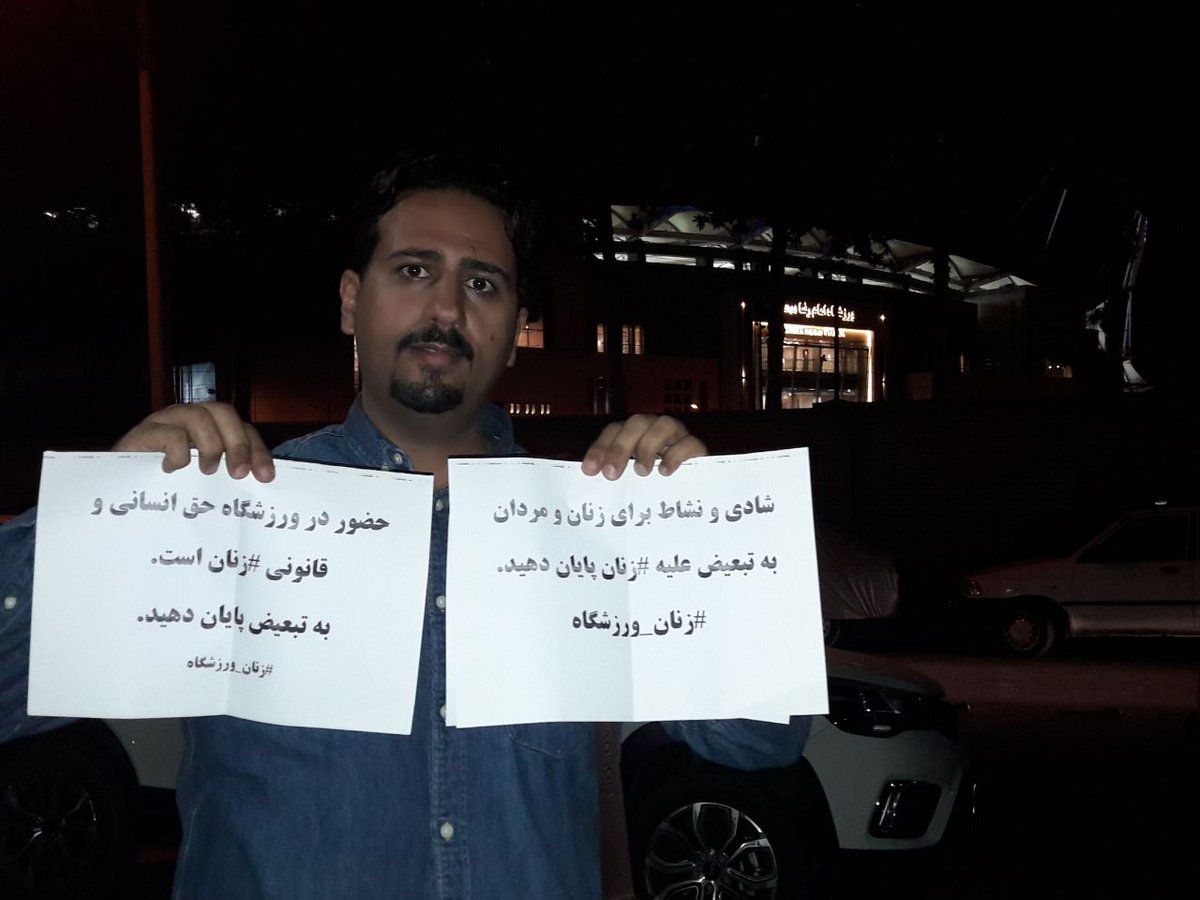 ورزشگاه امام رضا
حضور در ورزشگاه حق انسانی و
قانونی #زنان است.
به تبعیض پایان دهید.
#زنان_ورزشگاه
شادی و نشاط برای زنان و مردان
به تبعیض علیه #زنان پایان دهید.
#زنان_ورزشگاه